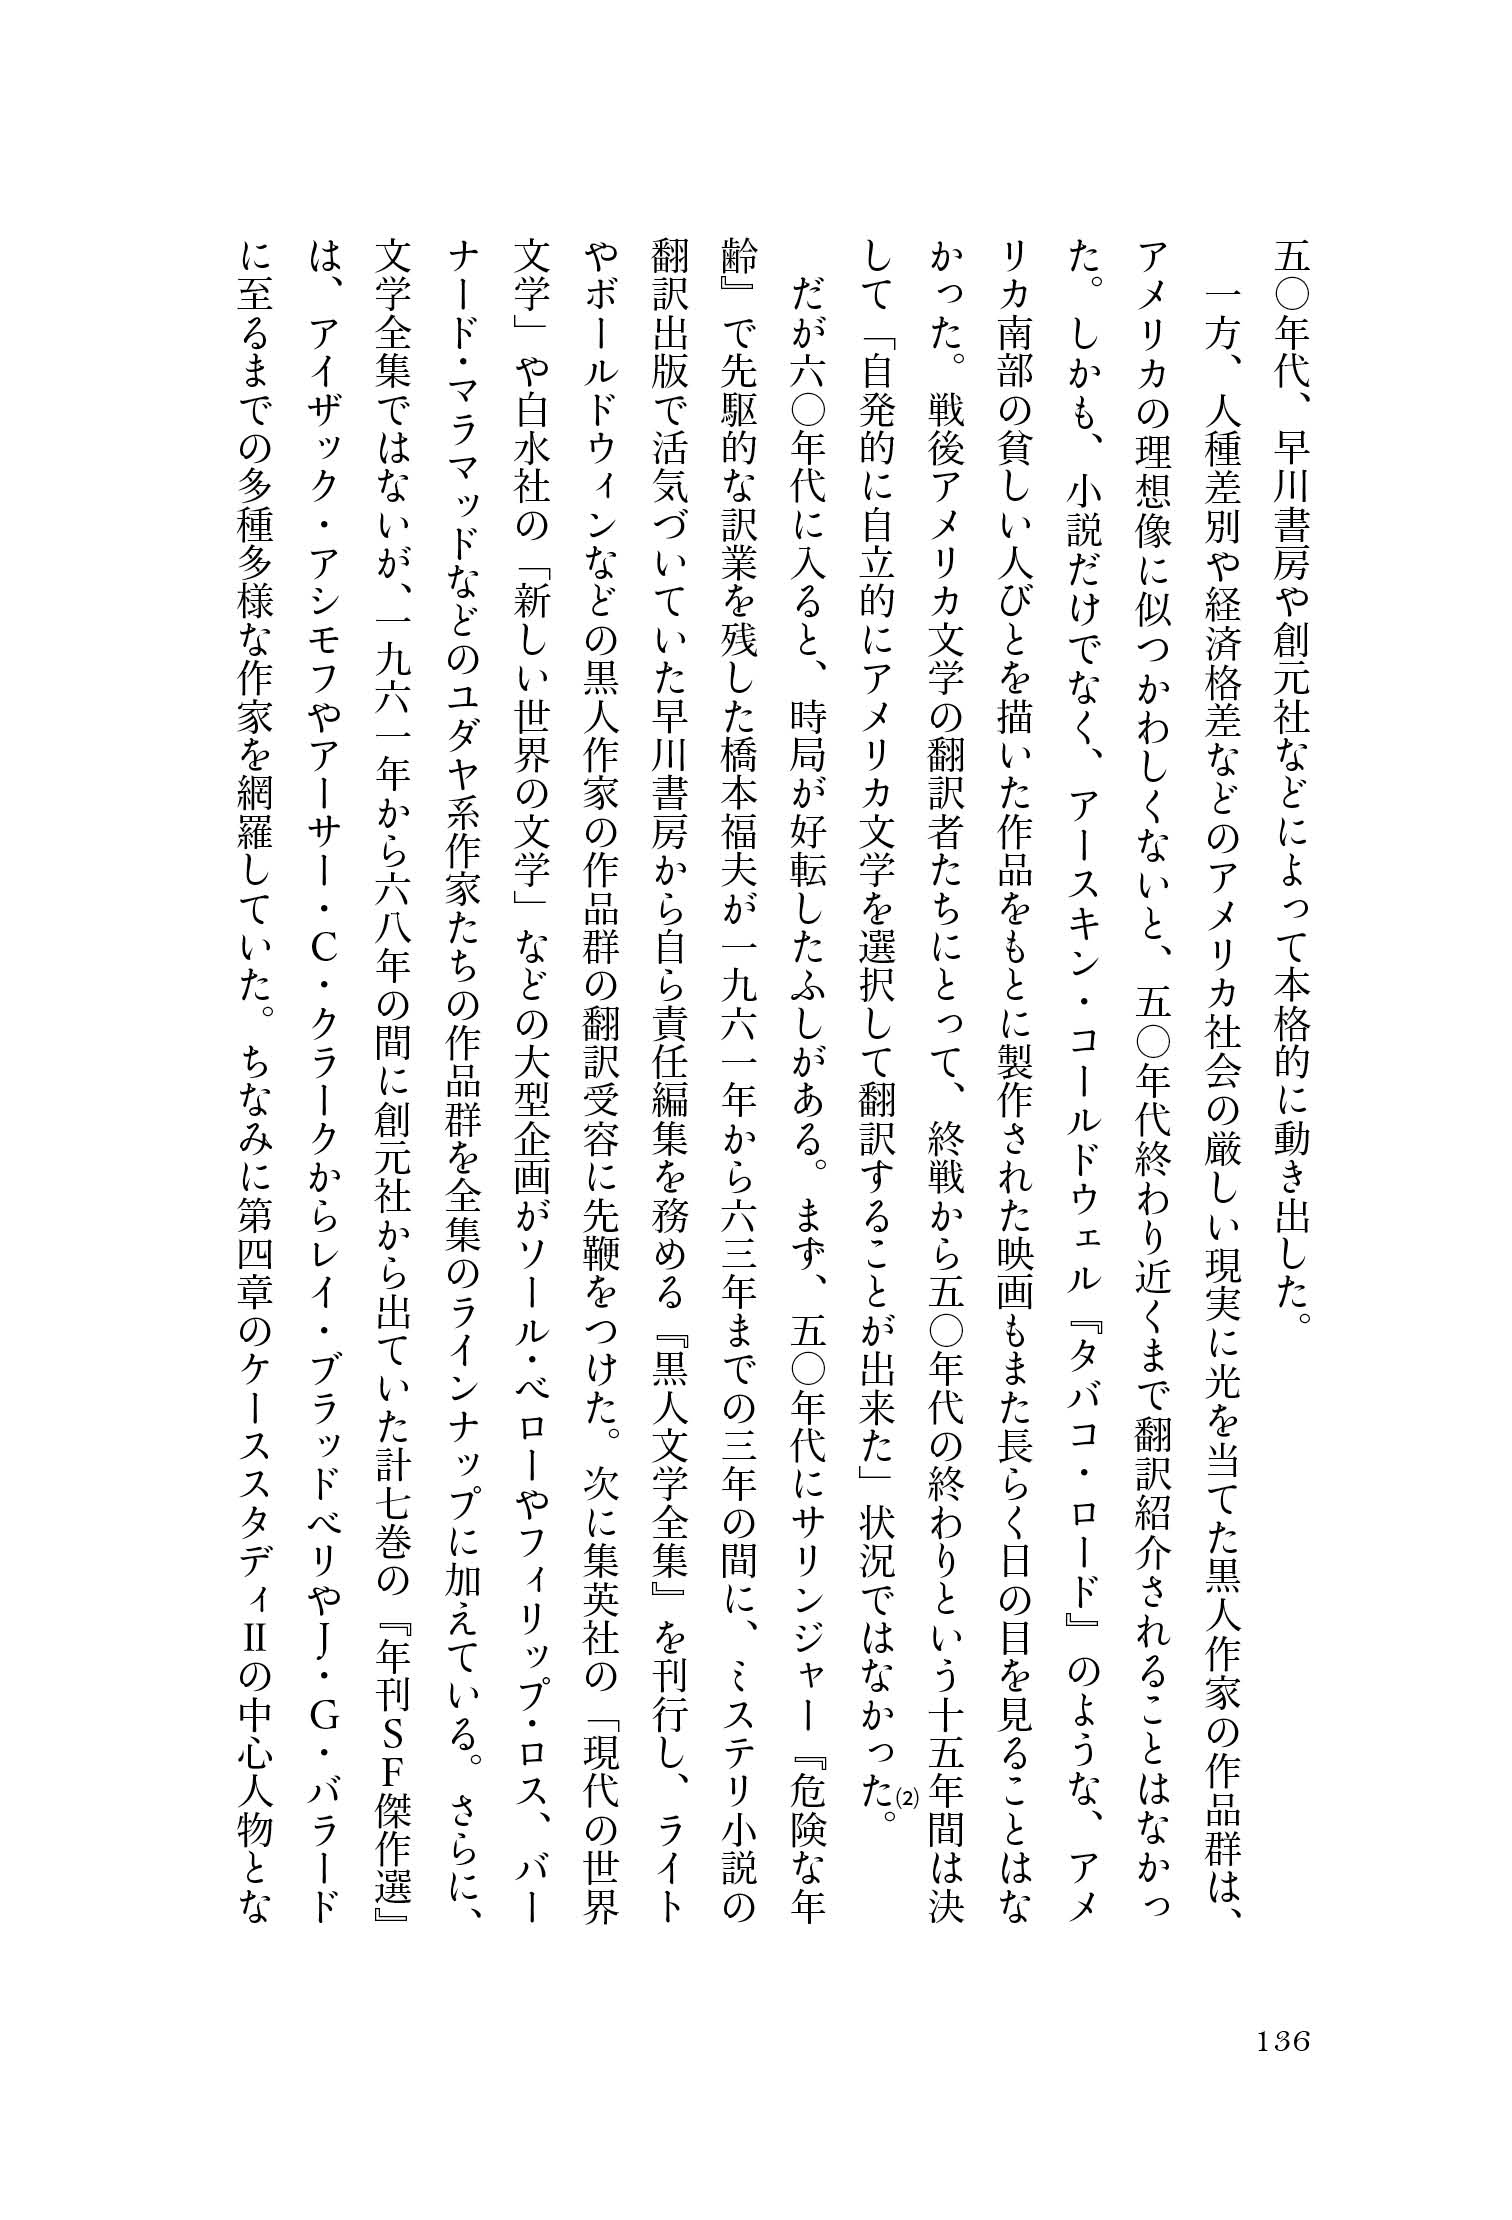 五〇年代、早川書房や創元社などによって本格的に動き出した。
一方、人種差別や経済格差などのアメリカ社会の厳しい現実に光を当てた黒人作家の作品群は、
アメリカの理想像に似つかわしくないと、五〇年代終わり近くまで翻訳紹介されることはなかっ
た。しかも、小説だけでなく、アースキン・コールドウェル『タバコ・ロード』のような、アメ
リカ南部の貧しい人びとを描いた作品をもとに製作された映画もまた長らく日の目を見ることはな
かった。戦後アメリカ文学の翻訳者たちにとって、終戦から五〇年代の終わりという十五年間は決
して「自発的に自立的にアメリカ文学を選択して翻訳することが出来た」状況ではなかった。(2)
だが六〇年代に入ると、時局が好転したふしがある。まず、五〇年代にサリンジャー『危険な年
齢』で先駆的な訳業を残した橋本福夫が一九六一年から六三年までの三年の間に、ミステリ小説の
翻訳出版で活気づいていた早川書房から自ら責任編集を務める『黒人文学全集』を刊行し、ライト
やボールドウィンなどの黒人作家の作品群の翻訳受容に先鞭をつけた。次に集英社の「現代の世界
文学」や白水社の「新しい世界の文学」などの大型企画がソール・ベローやフィリップ・ロス、バー
ナード・マラマッドなどのユダヤ系作家たちの作品群を全集のラインナップに加えている。さらに、
文学全集ではないが、一九六一年から六八年の間に創元社から出ていた計七巻の『年刊SF傑作選』
は、アイザック・アシモフやアーサー・C・クラークからレイ・ブラッドベリやJ・G・バラード
に至るまでの多種多様な作家を網羅していた。ちなみに第四章のケーススタディⅡの中心人物とな
136